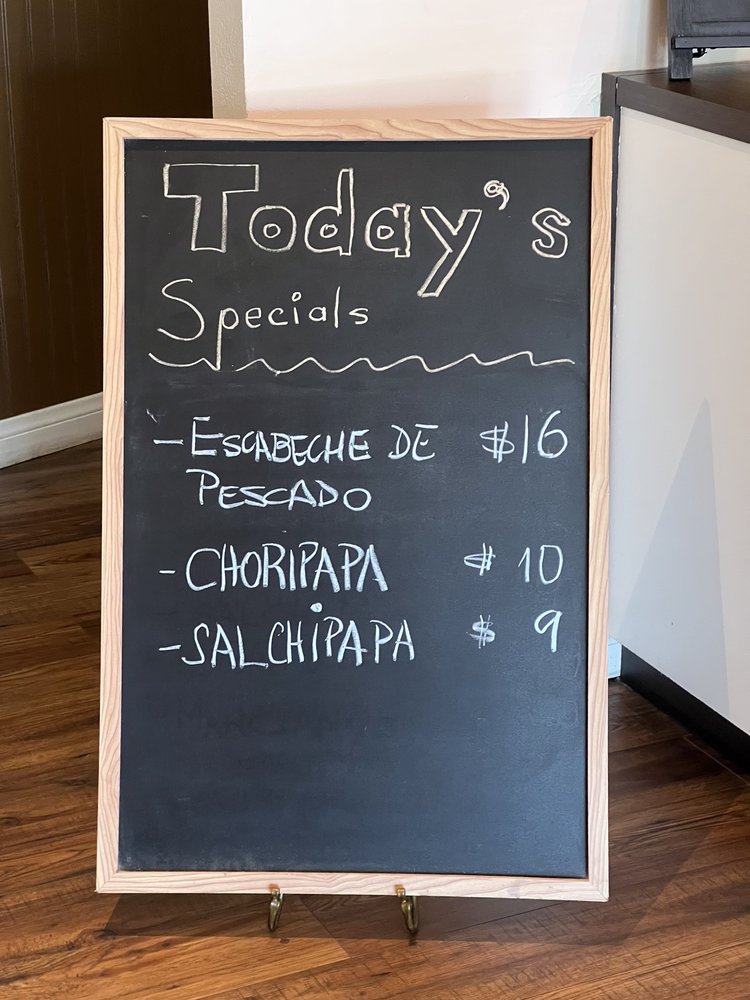 Today's
Specials
- ESCABECHE DE $16
PESCADO
- CHORIPAPA $ 10
- SALCHIPAPA $ 9